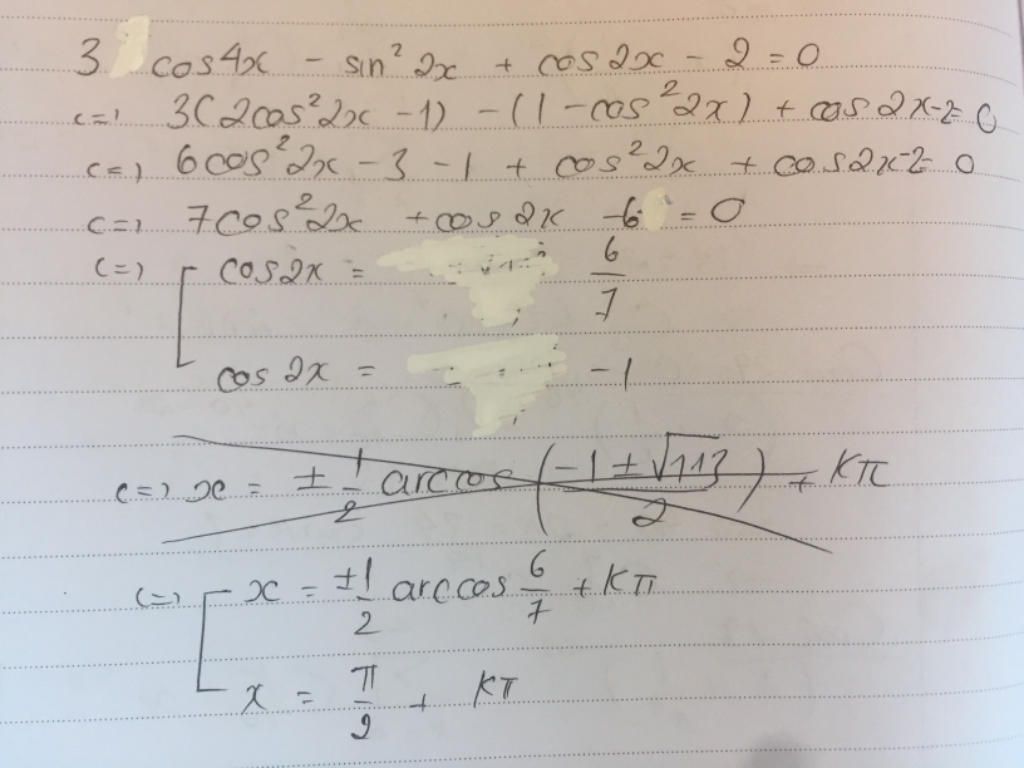 3 cos4x - sin²2x + cos2x - 2 = 0
<=> 3(2cos²2x - 1) - (1 - cos²2x) + cos2x-2= 0
<=> 6cos²2x - 3 - 1 + cos²2x + cos2x-2= 0
<=> 7cos²2x + cos2x -6 = 0
<=> [ cos2x = 6/7
cos2x = -1
<=> x = ± 1/2 arccos ( (-1 ± √113)/2 ) + kπ
<=> [ x = ±1/2 arccos 6/7 + kπ
x = π/2 + kπ